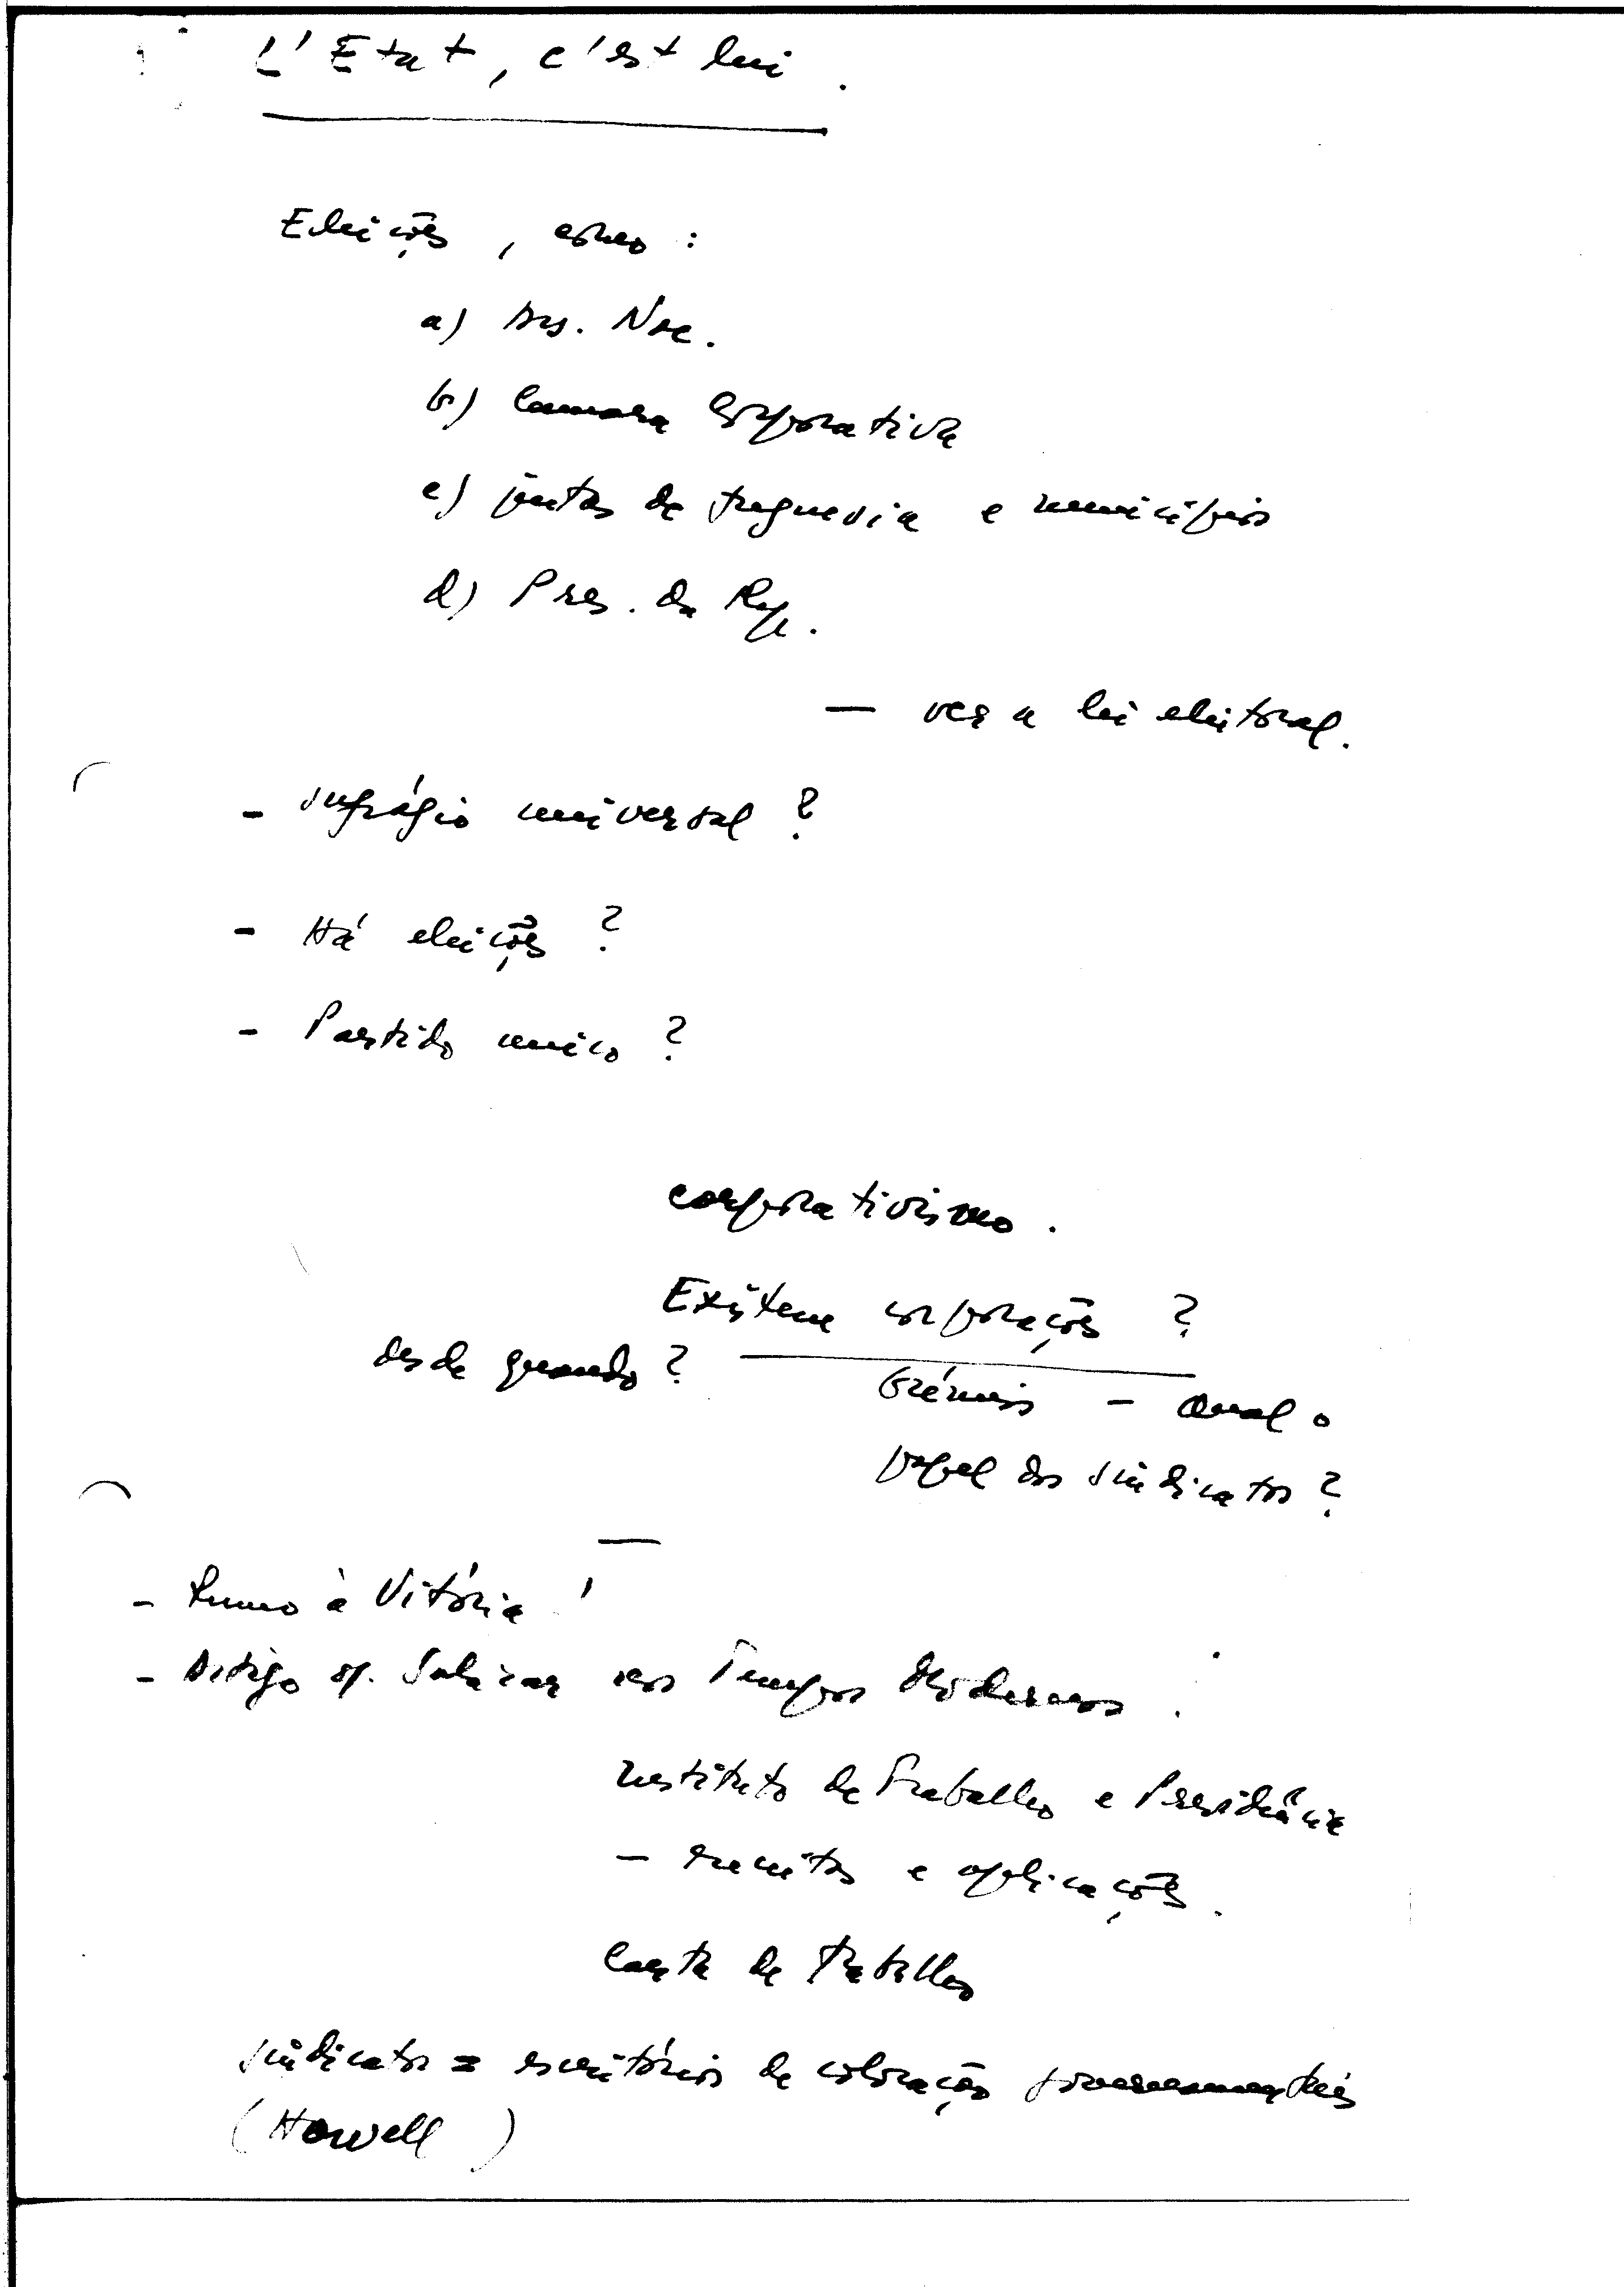 L'Etat, c'est lui.
Eleições, como:
a) Ass. Nac.
b) Camara Corporativa
c) juntas de freguesia e municípios
d) Pres. da Rep.
— ver a lei eleitoral.
- sufrágio universal?
- Há eleições?
- Partido unico?
corporativismo.
Existem corporações?
desde quando?
Grémios - Qual o
papel dos sindicatos?
- Rumo à Vitória!
- Artigo sp. Salazar nos Tempos Modernos.
Instituto de Trabalho e Previdência
- receitas e aplicações.
Carta de Trabalho
sindicatos = escritórios de colocação governamentais
(Howell)